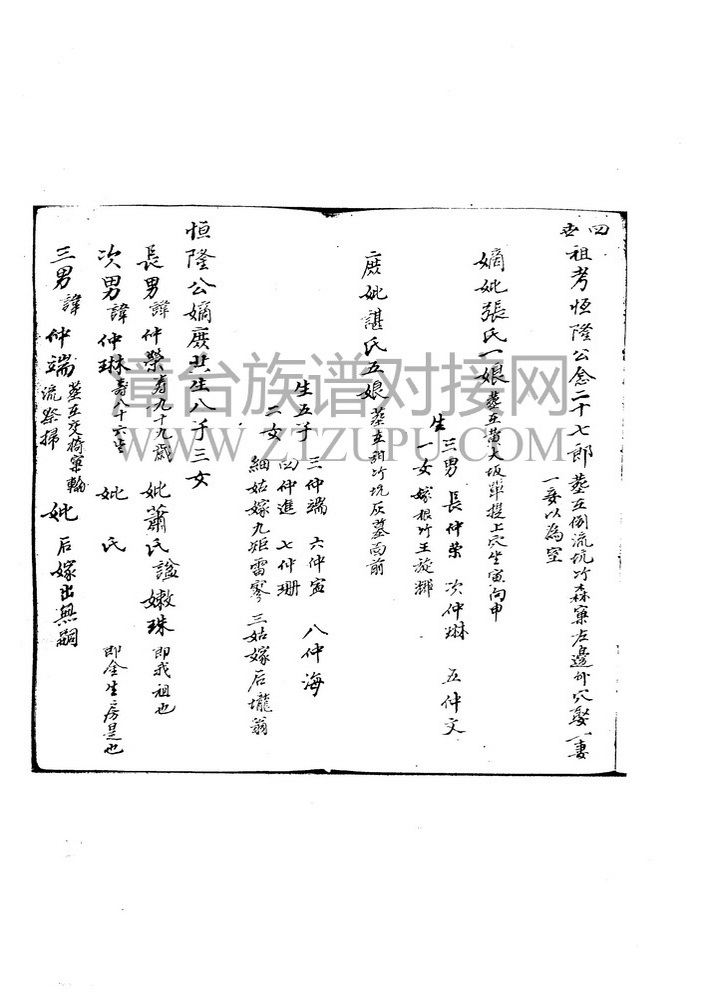 四世
祖考恒隆公念二十七郎葬在倒流坑竹森寮左邊外穴娶一妻
一妾以為室
嫡妣張氏一娘葬在黃大坂單提上穴坐寅向申
生
三男 長仲荣 次仲琳 五仲文
一女 嫁根竹王旋輝
庶妣諶氏五娘 葬在甜竹坑灰墓面前
生五子 三仲端 六仲寅 八仲海
四仲進 七仲珊
二女 細姑嫁九炬雷寥 三姑嫁后壠翁
恒隆公嫡庶共生八子三女
長男諱仲榮寿九十九歲 妣蕭氏謚嫩珠 即我祖也
次男諱仲琳壽八十六 妣 氏 即金生房是也
三男諱仲端 葬在交椅寮輪
流祭掃 妣 后嫁出無嗣
漳台族谱对接网
WWW.ZTZUPU.COM